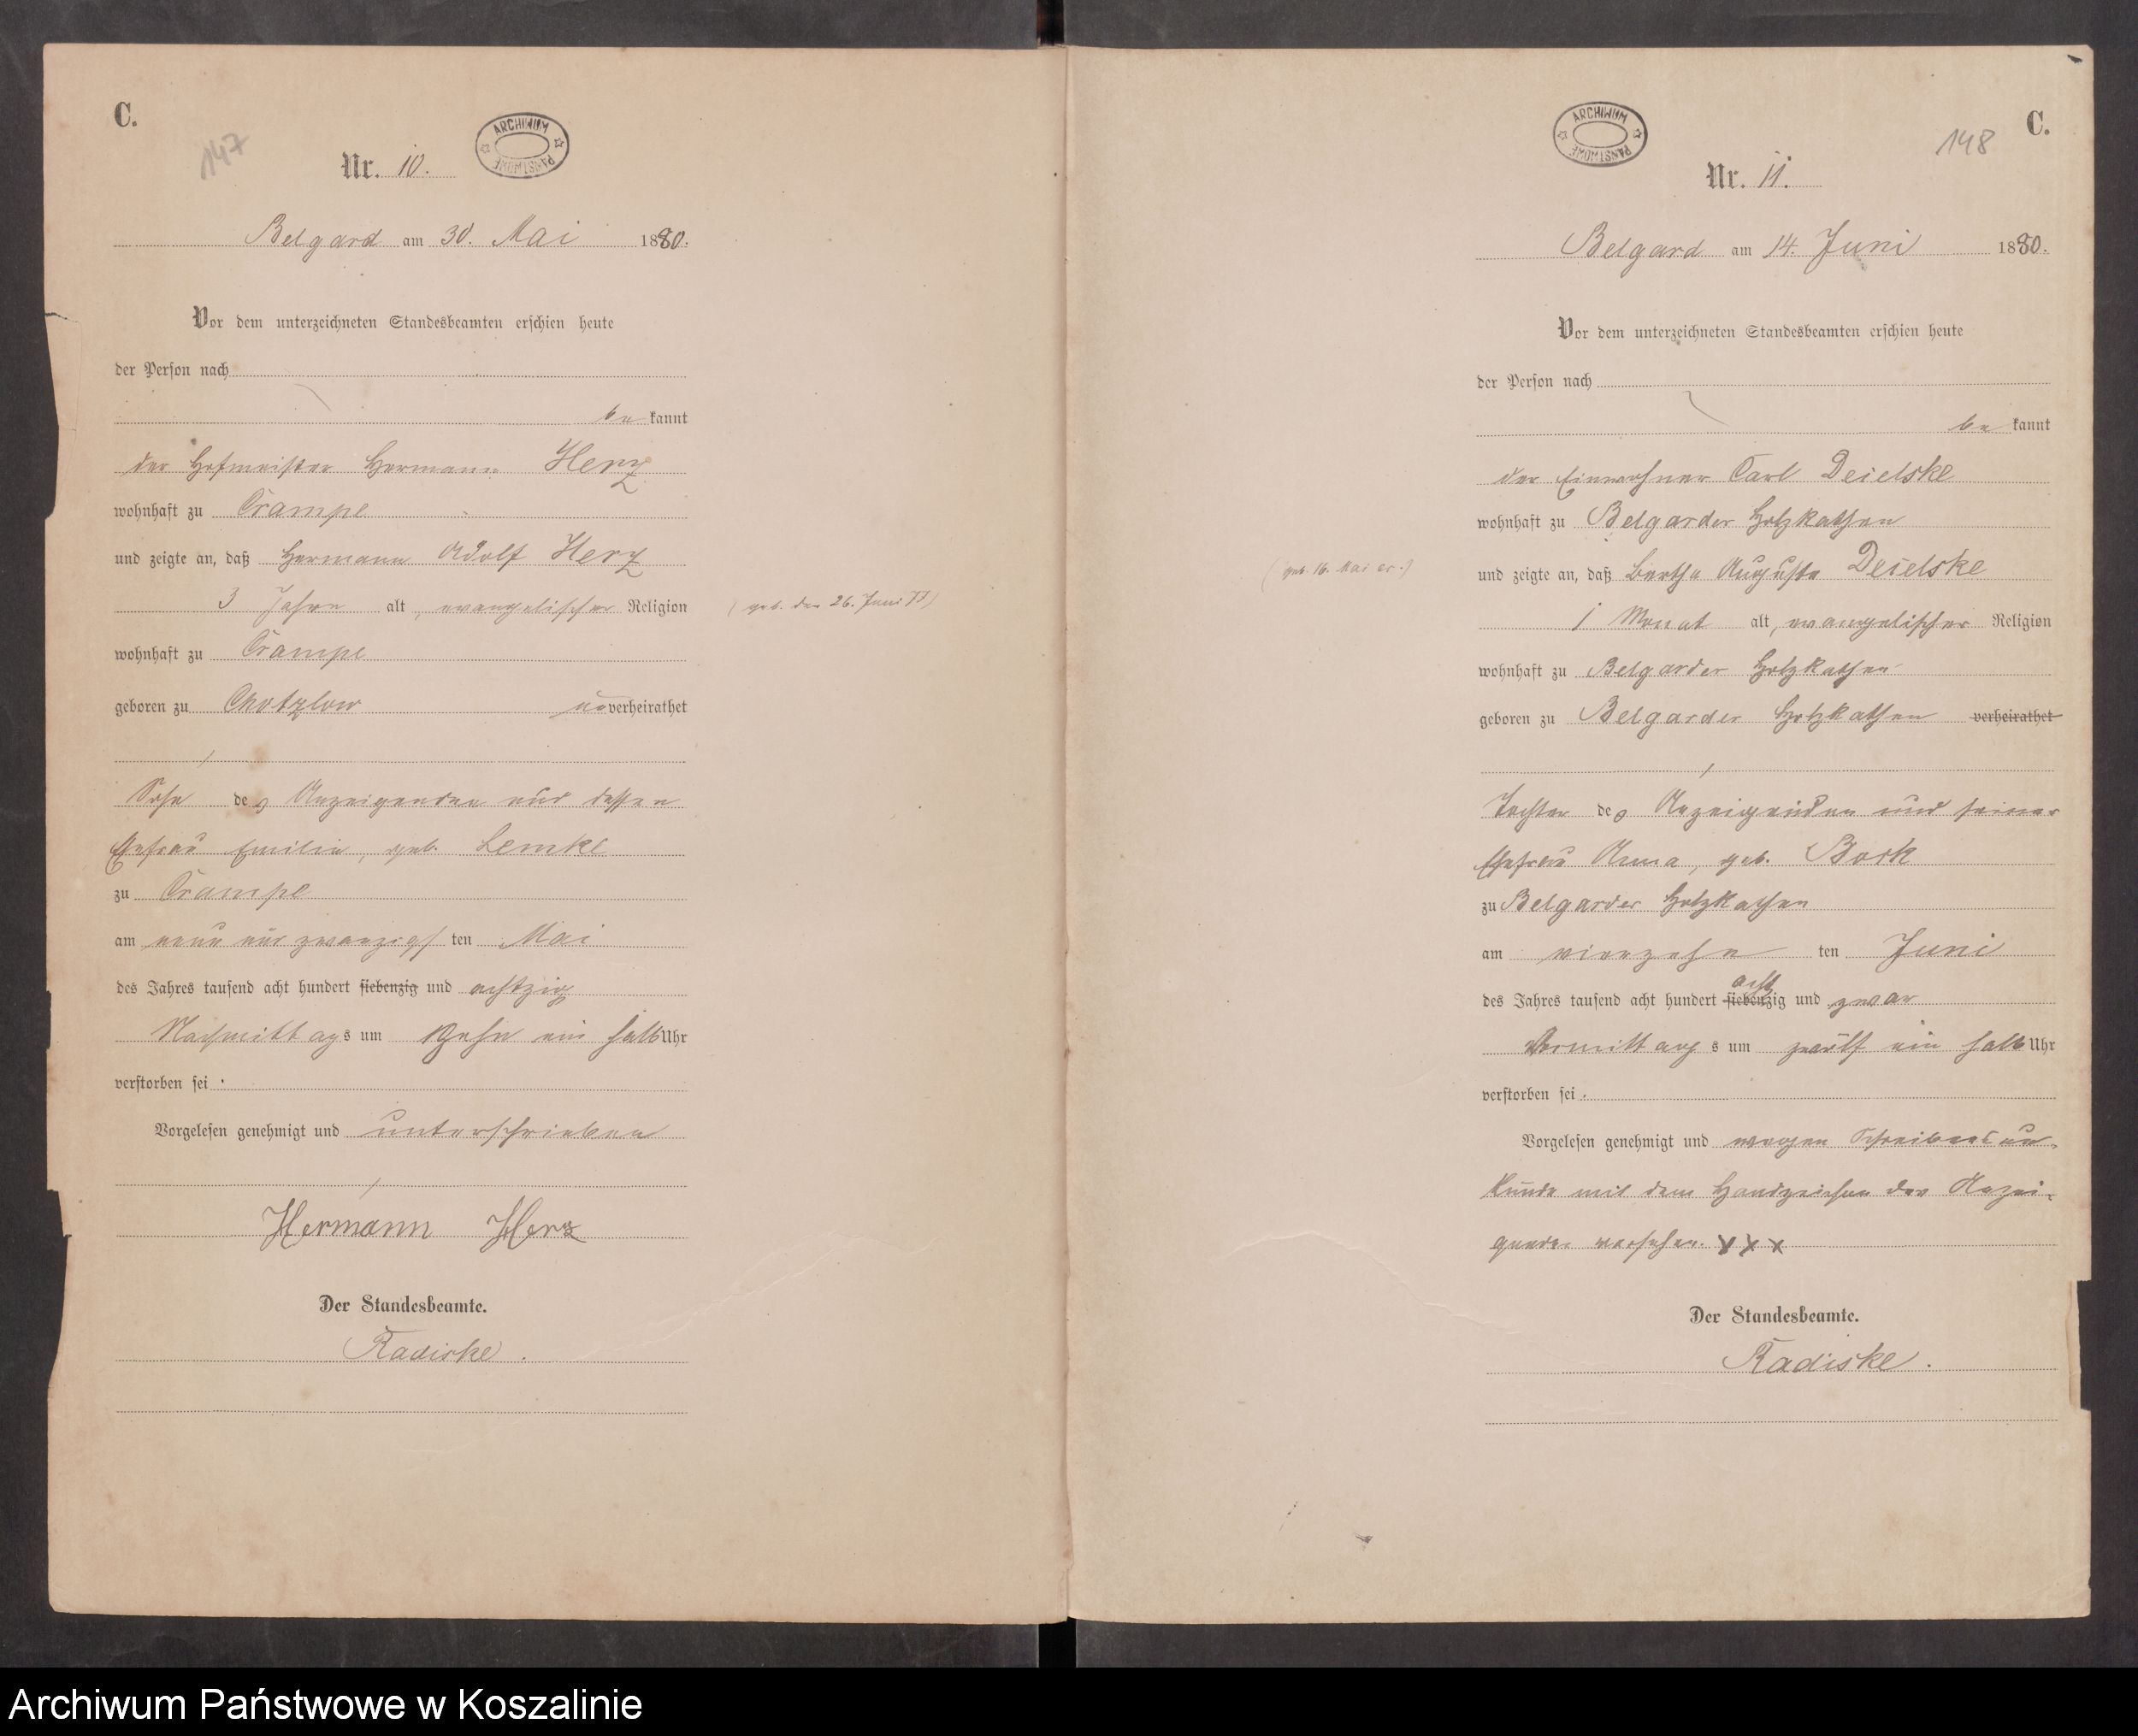 C.
147
Nr. 10.
ARCHIWUM PAŃSTWOWE
Belgard am 30. Mai 1880.
Vor dem unterzeichneten Standesbeamten erschien heute
der Person nach
be kannt
der Hofmeister Hermann Herz
wohnhaft zu Crampe
und zeigte an, daß Hermann Adolf Herz
3 Jahre alt, evangelischer Religion
(geb. den 26. Juni 77)
wohnhaft zu Crampe
geboren zu Chotzlow unverheirathet
Sohn des Anzeigenden und dessen
Ehefrau Emilie, geb. Lemke
zu Crampe
am neun und zwanzigsten Mai
des Jahres tausend acht hundert siebenzig und achtzig
Nachmittags um zehn ein halb Uhr
verstorben sei.
Vorgelesen genehmigt und unterschrieben
Hermann Herz
Der Standesbeamte.
Radiske.
C.
148
ARCHIWUM PAŃSTWOWE
Nr. 11.
Belgard am 14. Juni 1880.
Vor dem unterzeichneten Standesbeamten erschien heute
der Person nach
be kannt
der Einwohner Carl Deielske
wohnhaft zu Belgarder Holzkathen
(geb. 16. Mai cr.)
und zeigte an, daß Bertha Auguste Deielske
1 Monat alt, evangelischer Religion
wohnhaft zu Belgarder Holzkathen
geboren zu Belgarder Holzkathen verheirathet
Tochter des Anzeigenden und seiner
Ehefrau Anna, geb. Bork
zu Belgarder Holzkathen
am vierzehn ten Juni
acht
des Jahres tausend acht hundert siebenzig und zwar
Vormittags um zwölf ein halb Uhr
verstorben sei.
Vorgelesen genehmigt und wegen Schreibensun-
kunde mit dem Handzeichen des Anzei-
genden versehen. XXX
Der Standesbeamte.
Radiske.
Archiwum Państwowe w Koszalinie